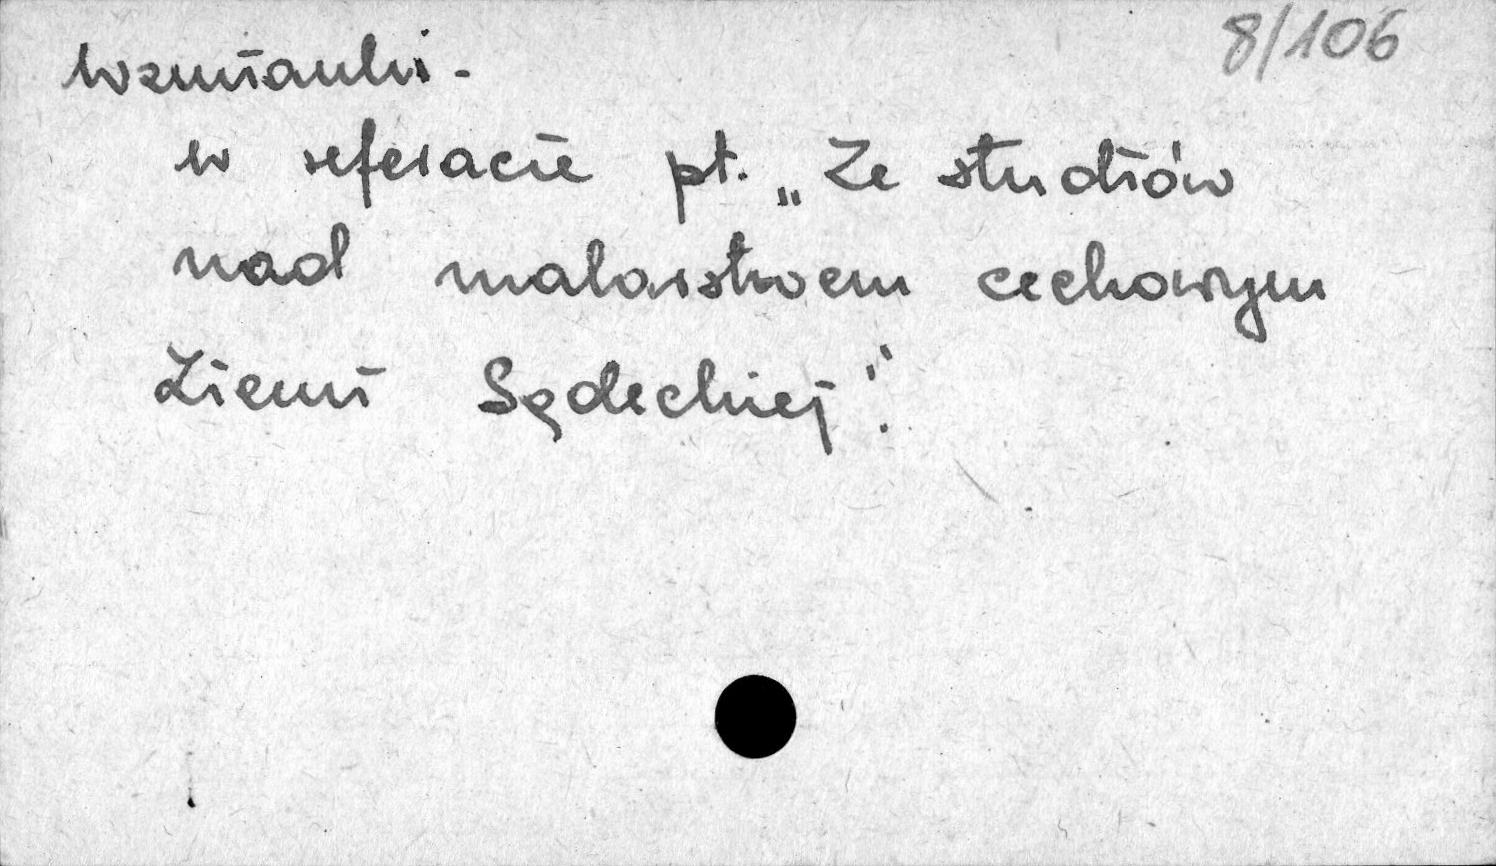 8/106
Wzmianki -
w referacie pt. „Ze studiów
nad malarstwem cechowym
Ziemi Sądeckiej".